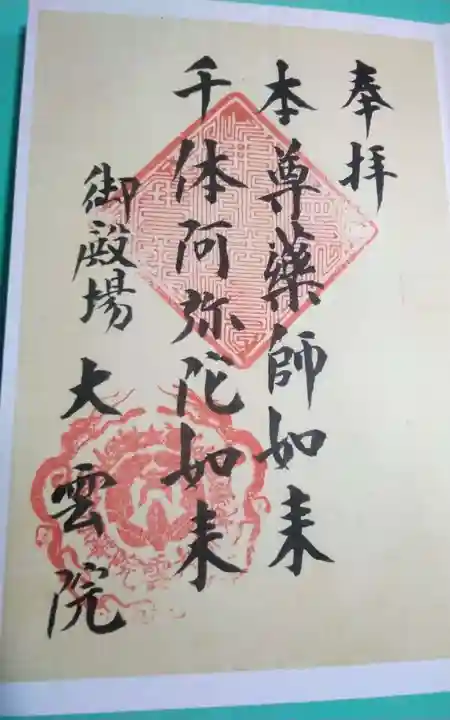 奉拝
本尊薬師如来
千体阿弥陀如来
御殿場 大雲院